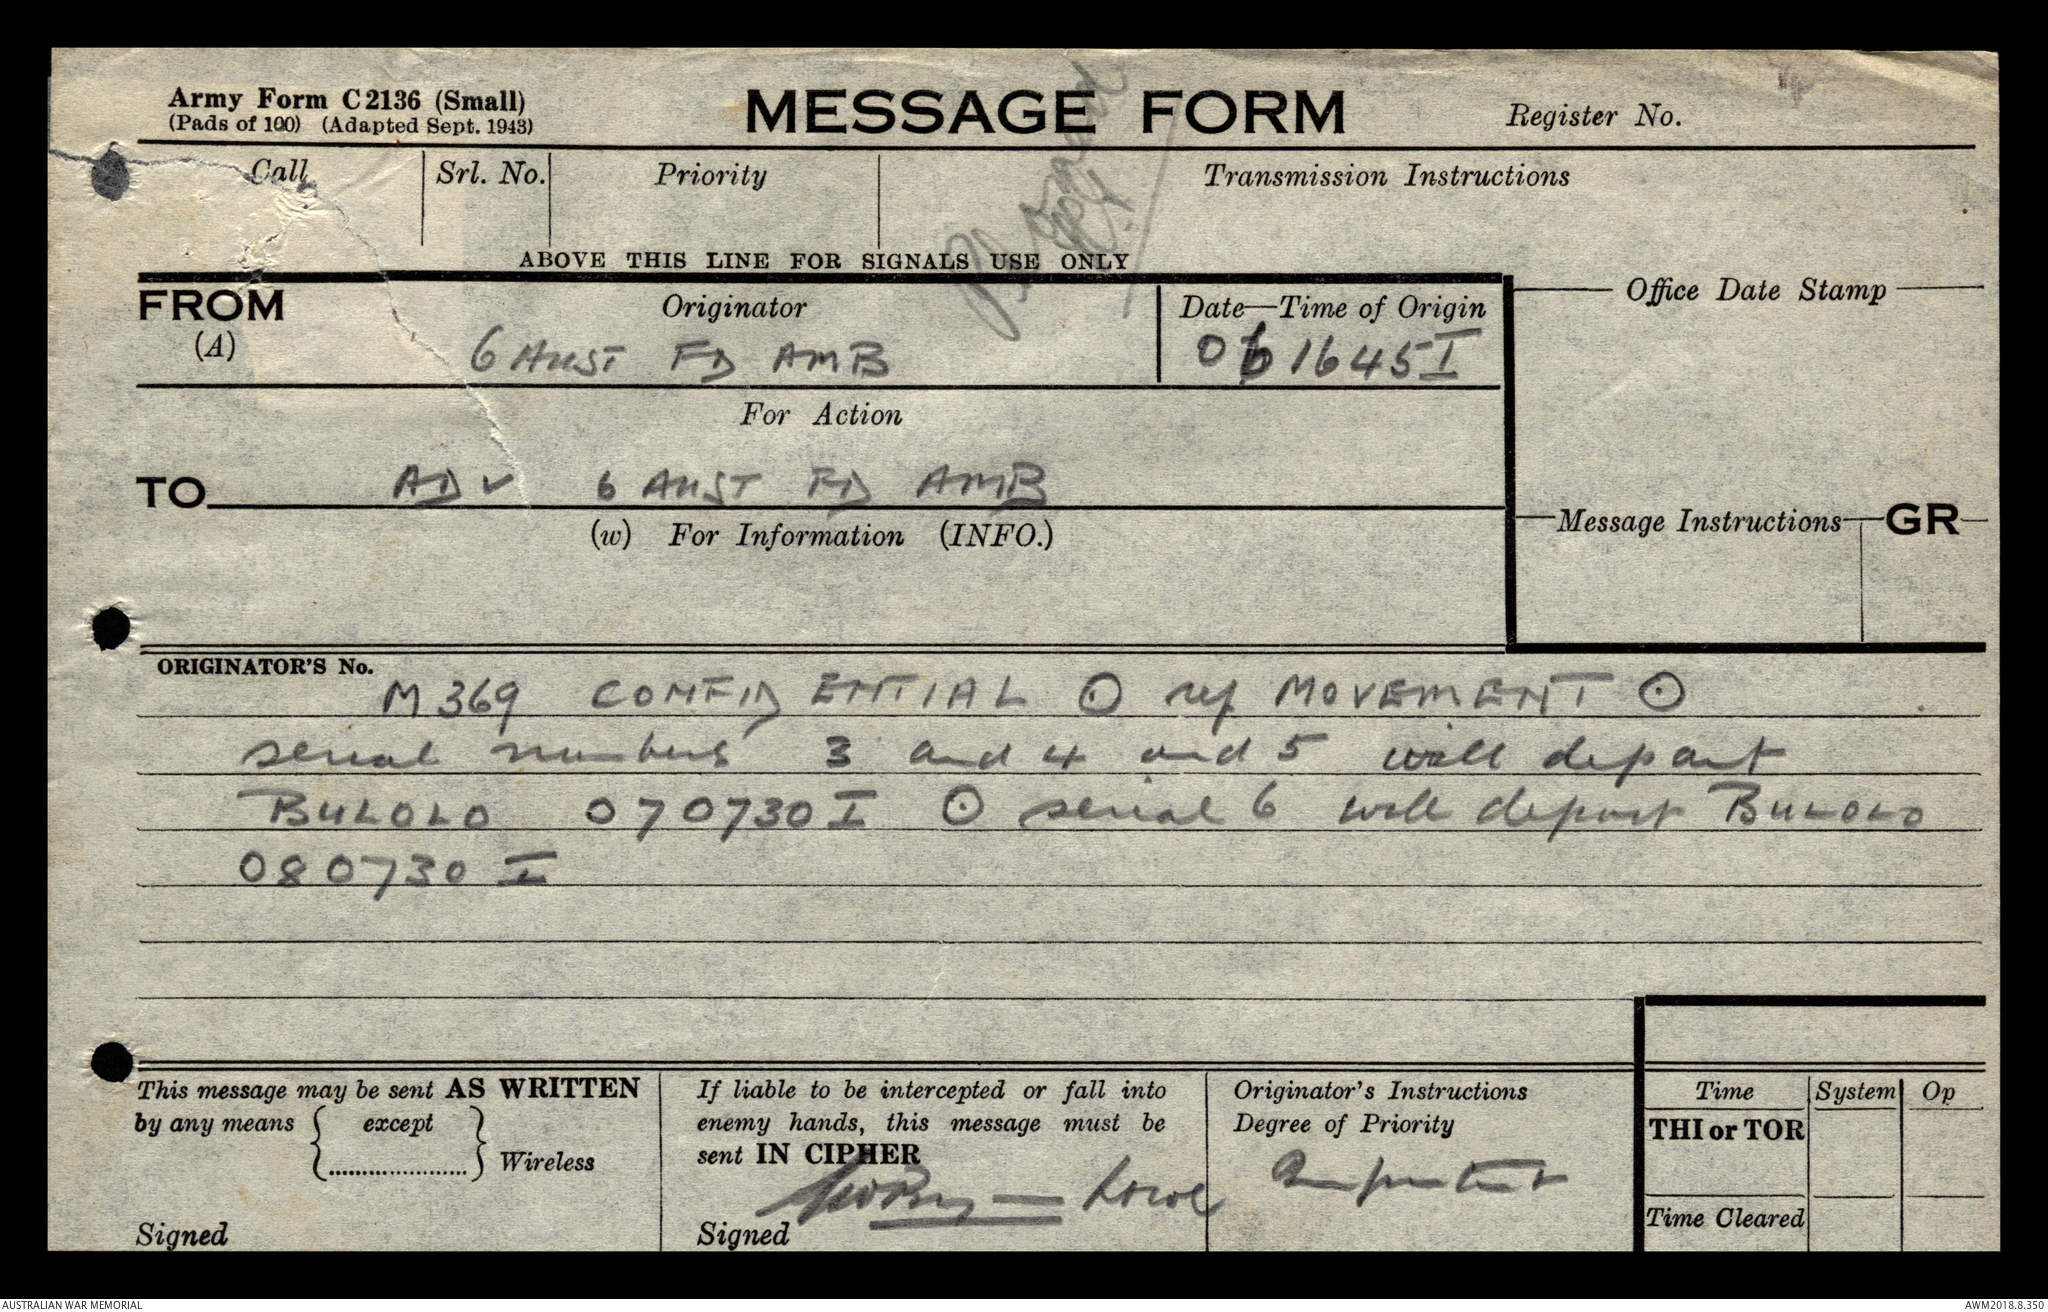 Army Form C2136 (Small)
(Pads of 100) (Adapted Sept. 1943)
MESSAGE FORM
Register No.
Call
Srl. No.
Priority
Transmission Instructions
ABOVE THIS LINE FOR SIGNALS USE ONLY
FROM
(A)
Originator
6 AUST FD AMB
Date—Time of Origin
061645 I
Office Date Stamp
For Action
TO ADV 6 AUST FD AMB
(w) For Information (INFO.)
Message Instructions GR
ORIGINATOR'S No.
M 369 CONFIDENTIAL ⊙ ref MOVEMENT ⊙
serial numbers 3 and 4 and 5 will depart
BULOLO 070730 I ⊙ serial 6 will depart BULOLO
080730 I
This message may be sent AS WRITTEN
by any means { except
{.....................} Wireless
Signed
If liable to be intercepted or fall into
enemy hands, this message must be
sent IN CIPHER
Signed
Originator's Instructions
Degree of Priority
Important
Time System Op
THI or TOR
Time Cleared
AUSTRALIAN WAR MEMORIAL
AWM2018.8.350